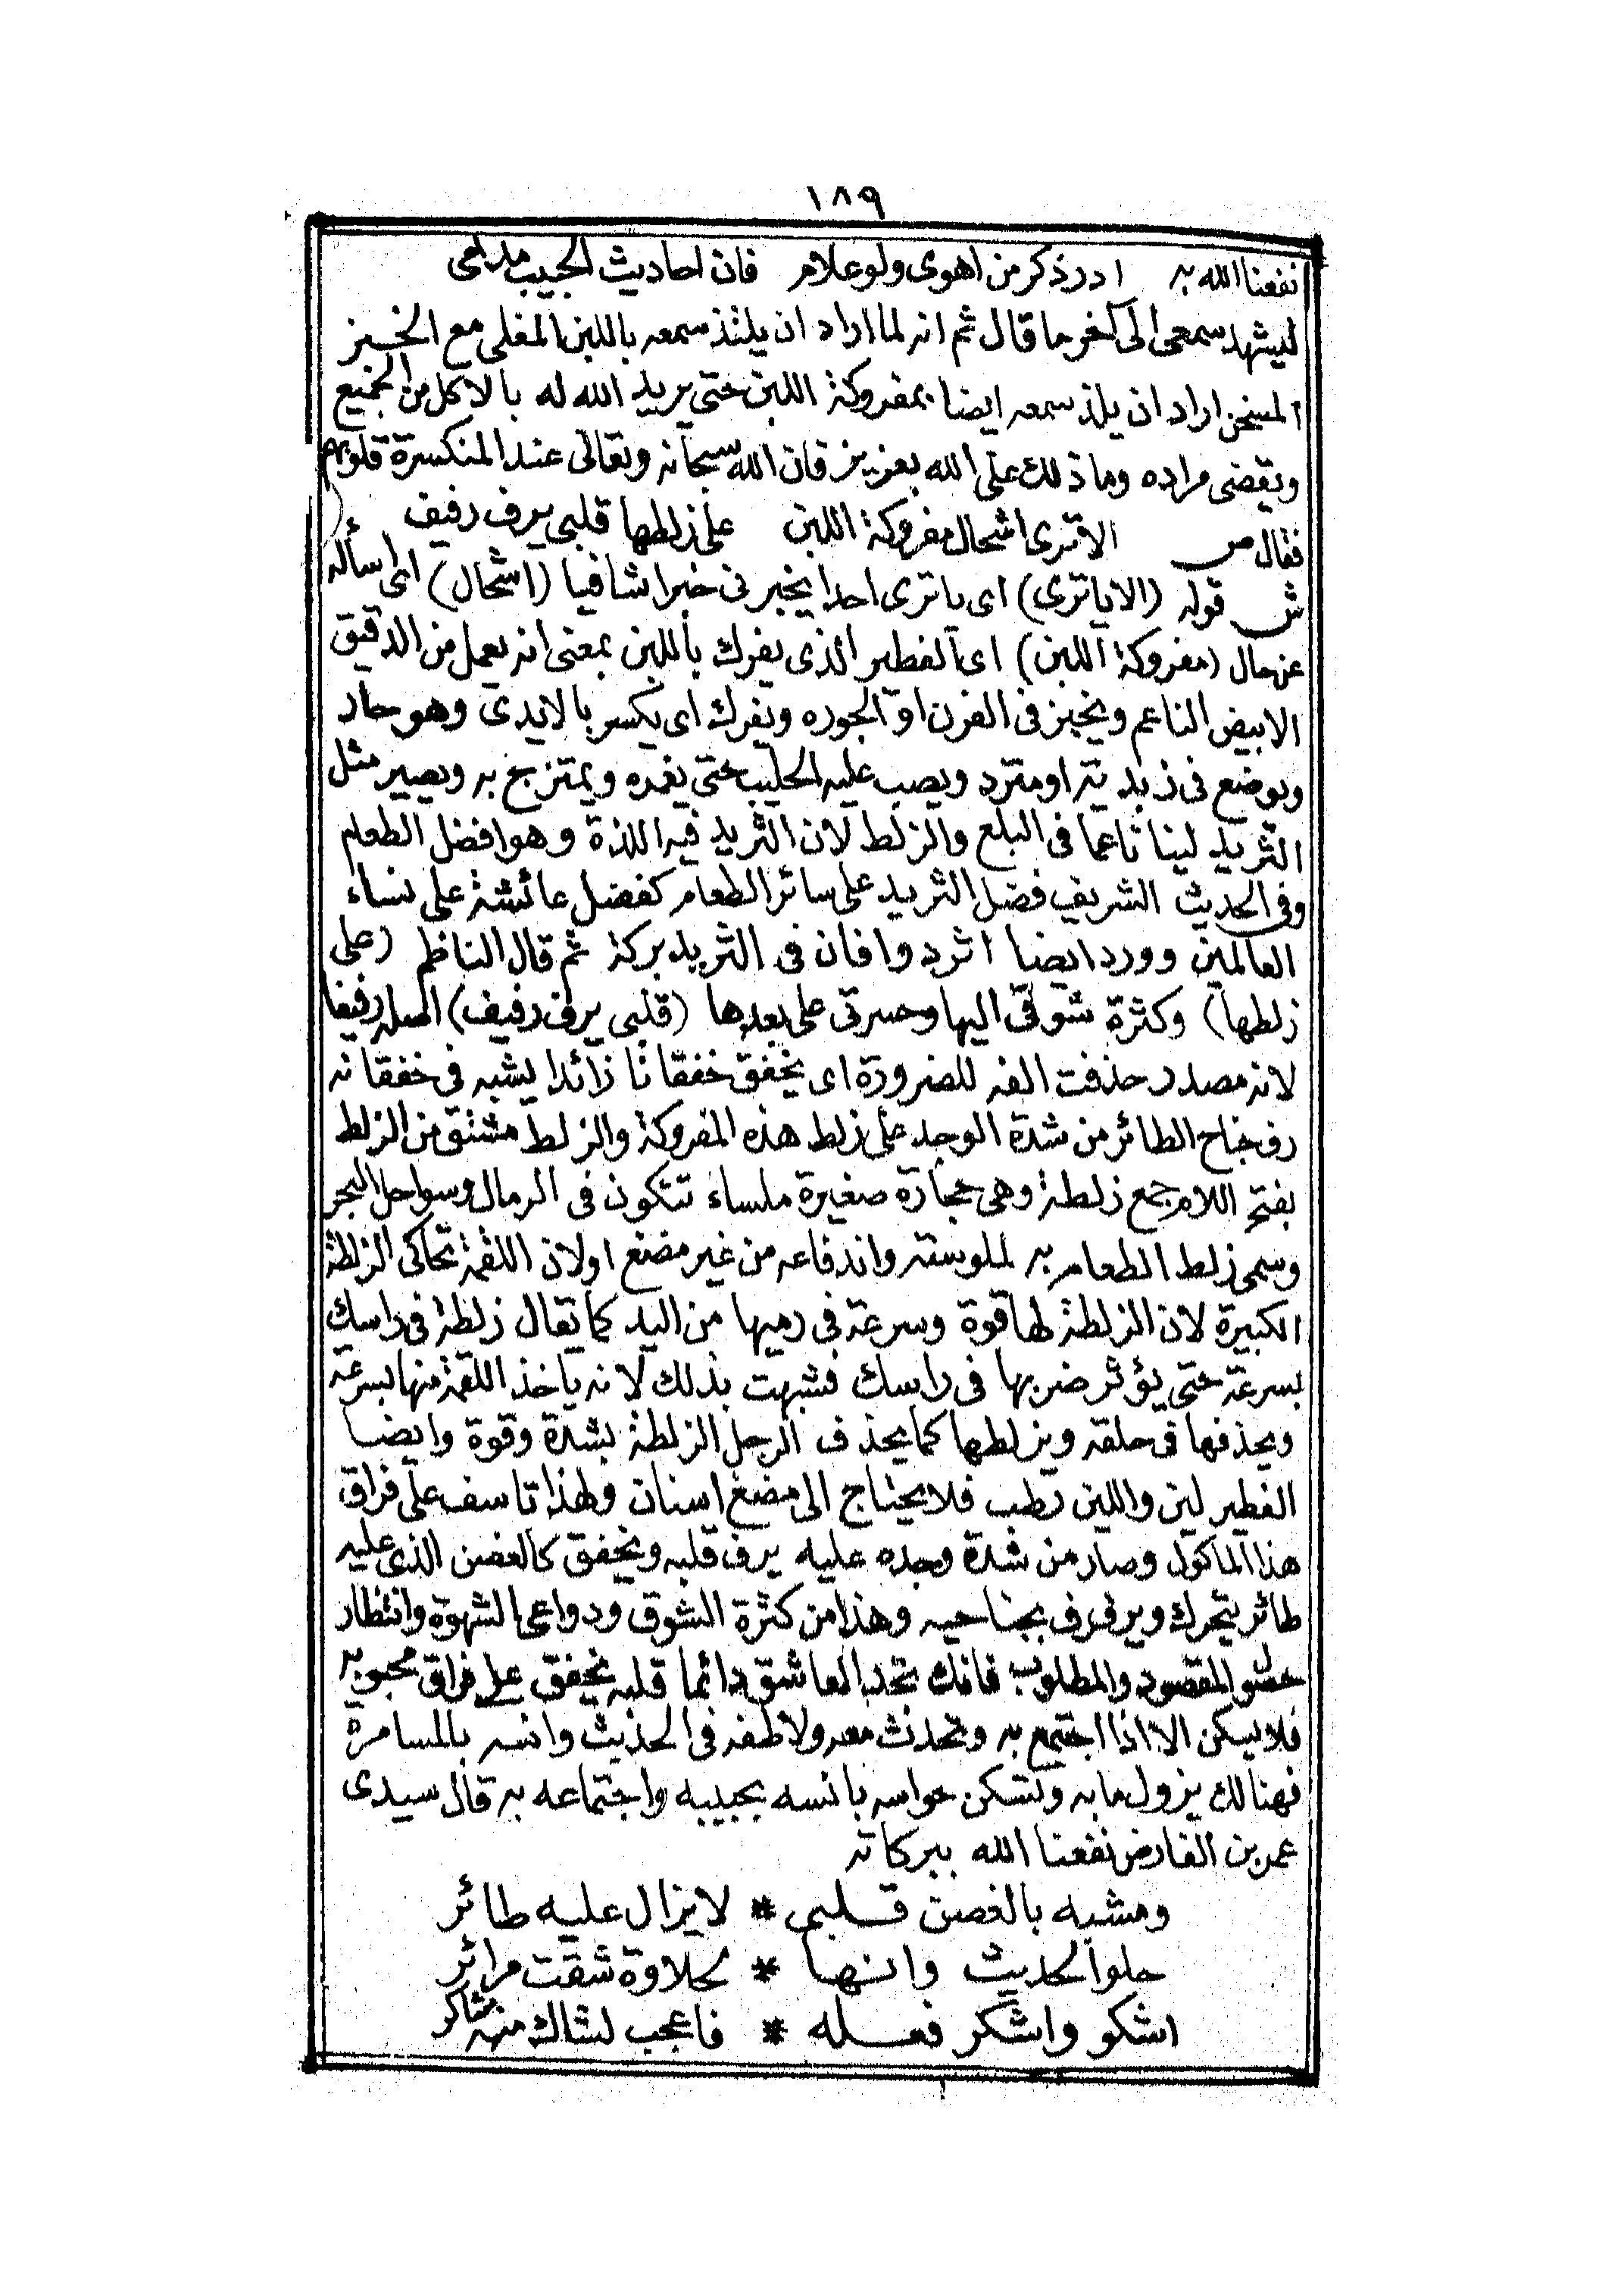 ١٨٩
نفعنا الله به ادر ذكر من اهوى ولو علام فان احاديث الحبيب مدامى
ليشهد سمعى الى آخر ما قال ثم انه لما اراد ان يلذذ سمعه باللبن المغلى مع الخبز
المسخن اراد ان يلذ سمعه ايضا بمفروكة اللبن حتى يريد الله له بالاكل من الجميع
ويقضى مراده وما ذلك على الله بعزيز فان الله سبحانه وتعالى عند المنكسرة قلوبهم
فقال ص الا ترى اشحال مفروكة اللبن على زلطها قلبى يرف رفيف
ش قوله (الا يا ترى) اى يا ترى احدا يخبرنى خبرا شافيا (اشحال) اى اسأله
عن حال (مفروكة اللبن) اى الفطير الذى يفرك باللبن بمعنى انه يعمل من الدقيق
الابيض الناعم ويخبز فى الفرن او الجوره ويفرك اى يكسر بالايدى وهو حار
ويوضع فى زبديه او مترد ويصب عليه الحليب حتى يغمره ويمتزج به ويصير مثل
الثريد لينا ناعما فى البلع والزلط لان الثريد فيه اللذة وهو افضل الطعام
وفى الحديث الشريف فضل الثريد على سائر الطعام كفضل عائشة على نساء
العالمين وورد ايضا اثردوا فان فى الثريد بركة ثم قال الناظم (على
زلطها) وكثرة شوقى اليها وحسرتى على بعدها (قلبى يرف رفيف) اصله رفيفا
لانه مصدر حذفت الفه للضرورة اى يخفق خفقانا زائدا يشبه فى خفقانه
رف جناح الطائر من شدة الوجد على زلط هذه المفروكة والزلط مشتق من الزلط
بفتح اللام جمع زلطة وهى حجارة صغيرة ملساء تتكون فى الرمال وسواحل البحر
وسمى زلط الطعام به لملوسته واندفاعه من غير مضغ او لان اللقمة تحاكى الزلطة
الكبيرة لان الزلطة لها قوة وسرعة فى رميها من اليد كما تقال زلطة فى راسك
بسرعة حتى يؤثر ضربها فى راسك فشبهت بذلك لانه ياخذ اللقمة منها بسرعة
ويحذفها فى حلقه ويزلطها كما يحذف الرجل الزلطة بشدة وقوة وايضا
الفطير لين واللبن رطب فلا يحتاج الى مضغ اسنان ولهذا تاسف على فراق
هذا الماكول وصار من شدة وجده عليه يرف قلبه ويخفق كالغصن الذى عليه
طائر يتحرك ويرفرف بجناحيه وهذا من كثرة الشوق ودواعى الشهوة وانتظار
المقصود والمطلوب فانك تجد العاشق دائما قلبه يخفق على فراق محبوبه
فلا يسكن الا اذا اجتمع به وتحدث معه ولاطفه فى الحديث وانسه بالمسامرة
فهنالك يزول ما به وتسكن حواسه بانسه بحبيبه واجتماعه به قال سيدى
عمر بن الفارض نفعنا الله ببركاته
ومشبه بالغصن قلبى * لا يزال عليه طائر
حلو الحديث وانها * لحلاوة شقت مرائر
اشكو واشكر فعله * فاعجب لشاك منه شاكر